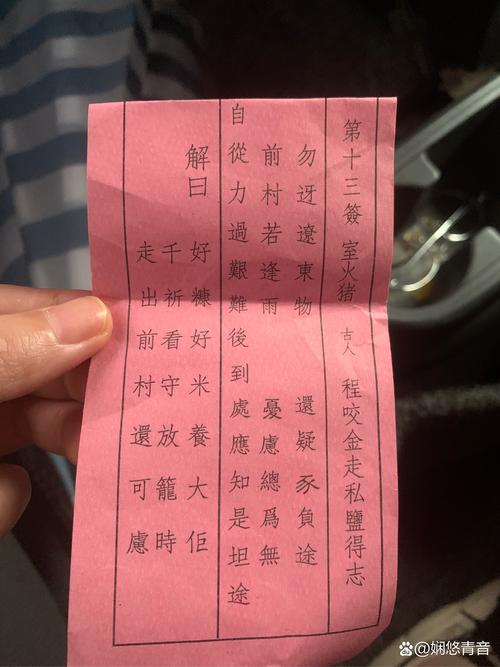 第十三簽 室火猪 古人 程咬金走私鹽得志
勿迓遼東物 還疑豕負途
前村若逢雨 憂慮總爲無
自從力過艱難後到處應知是坦途
解曰
好糠好米養大佢
千祈看守放籠時
走出前村還可慮
@娴悠青音